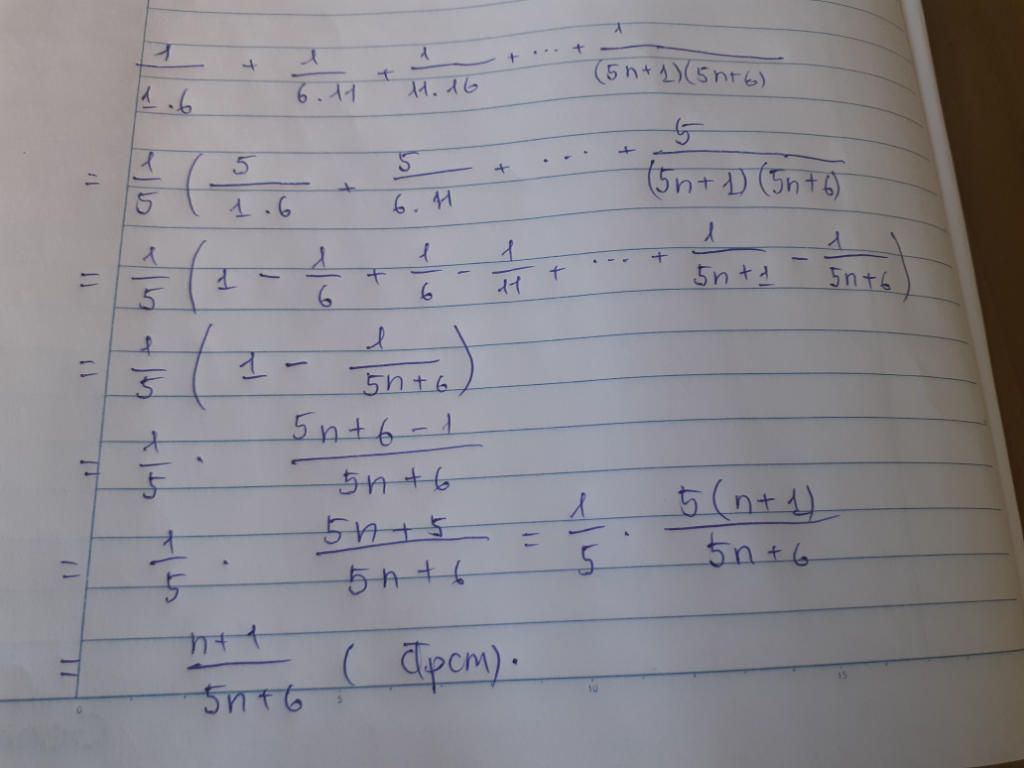 1/(1.6) + 1/(6.11) + 1/(11.16) + ... + 1/((5n+1)(5n+6))
= 1/5 ( 5/(1.6) + 5/(6.11) + ... + 5/((5n+1)(5n+6))
= 1/5 ( 1 - 1/6 + 1/6 - 1/11 + ... + 1/(5n+1) - 1/(5n+6) )
= 1/5 ( 1 - 1/(5n+6) )
= 1/5 . (5n+6-1)/(5n+6)
= 1/5 . (5n+5)/(5n+6) = 1/5 . 5(n+1)/(5n+6)
= (n+1)/(5n+6) ( đpcm).
0 5 10 15